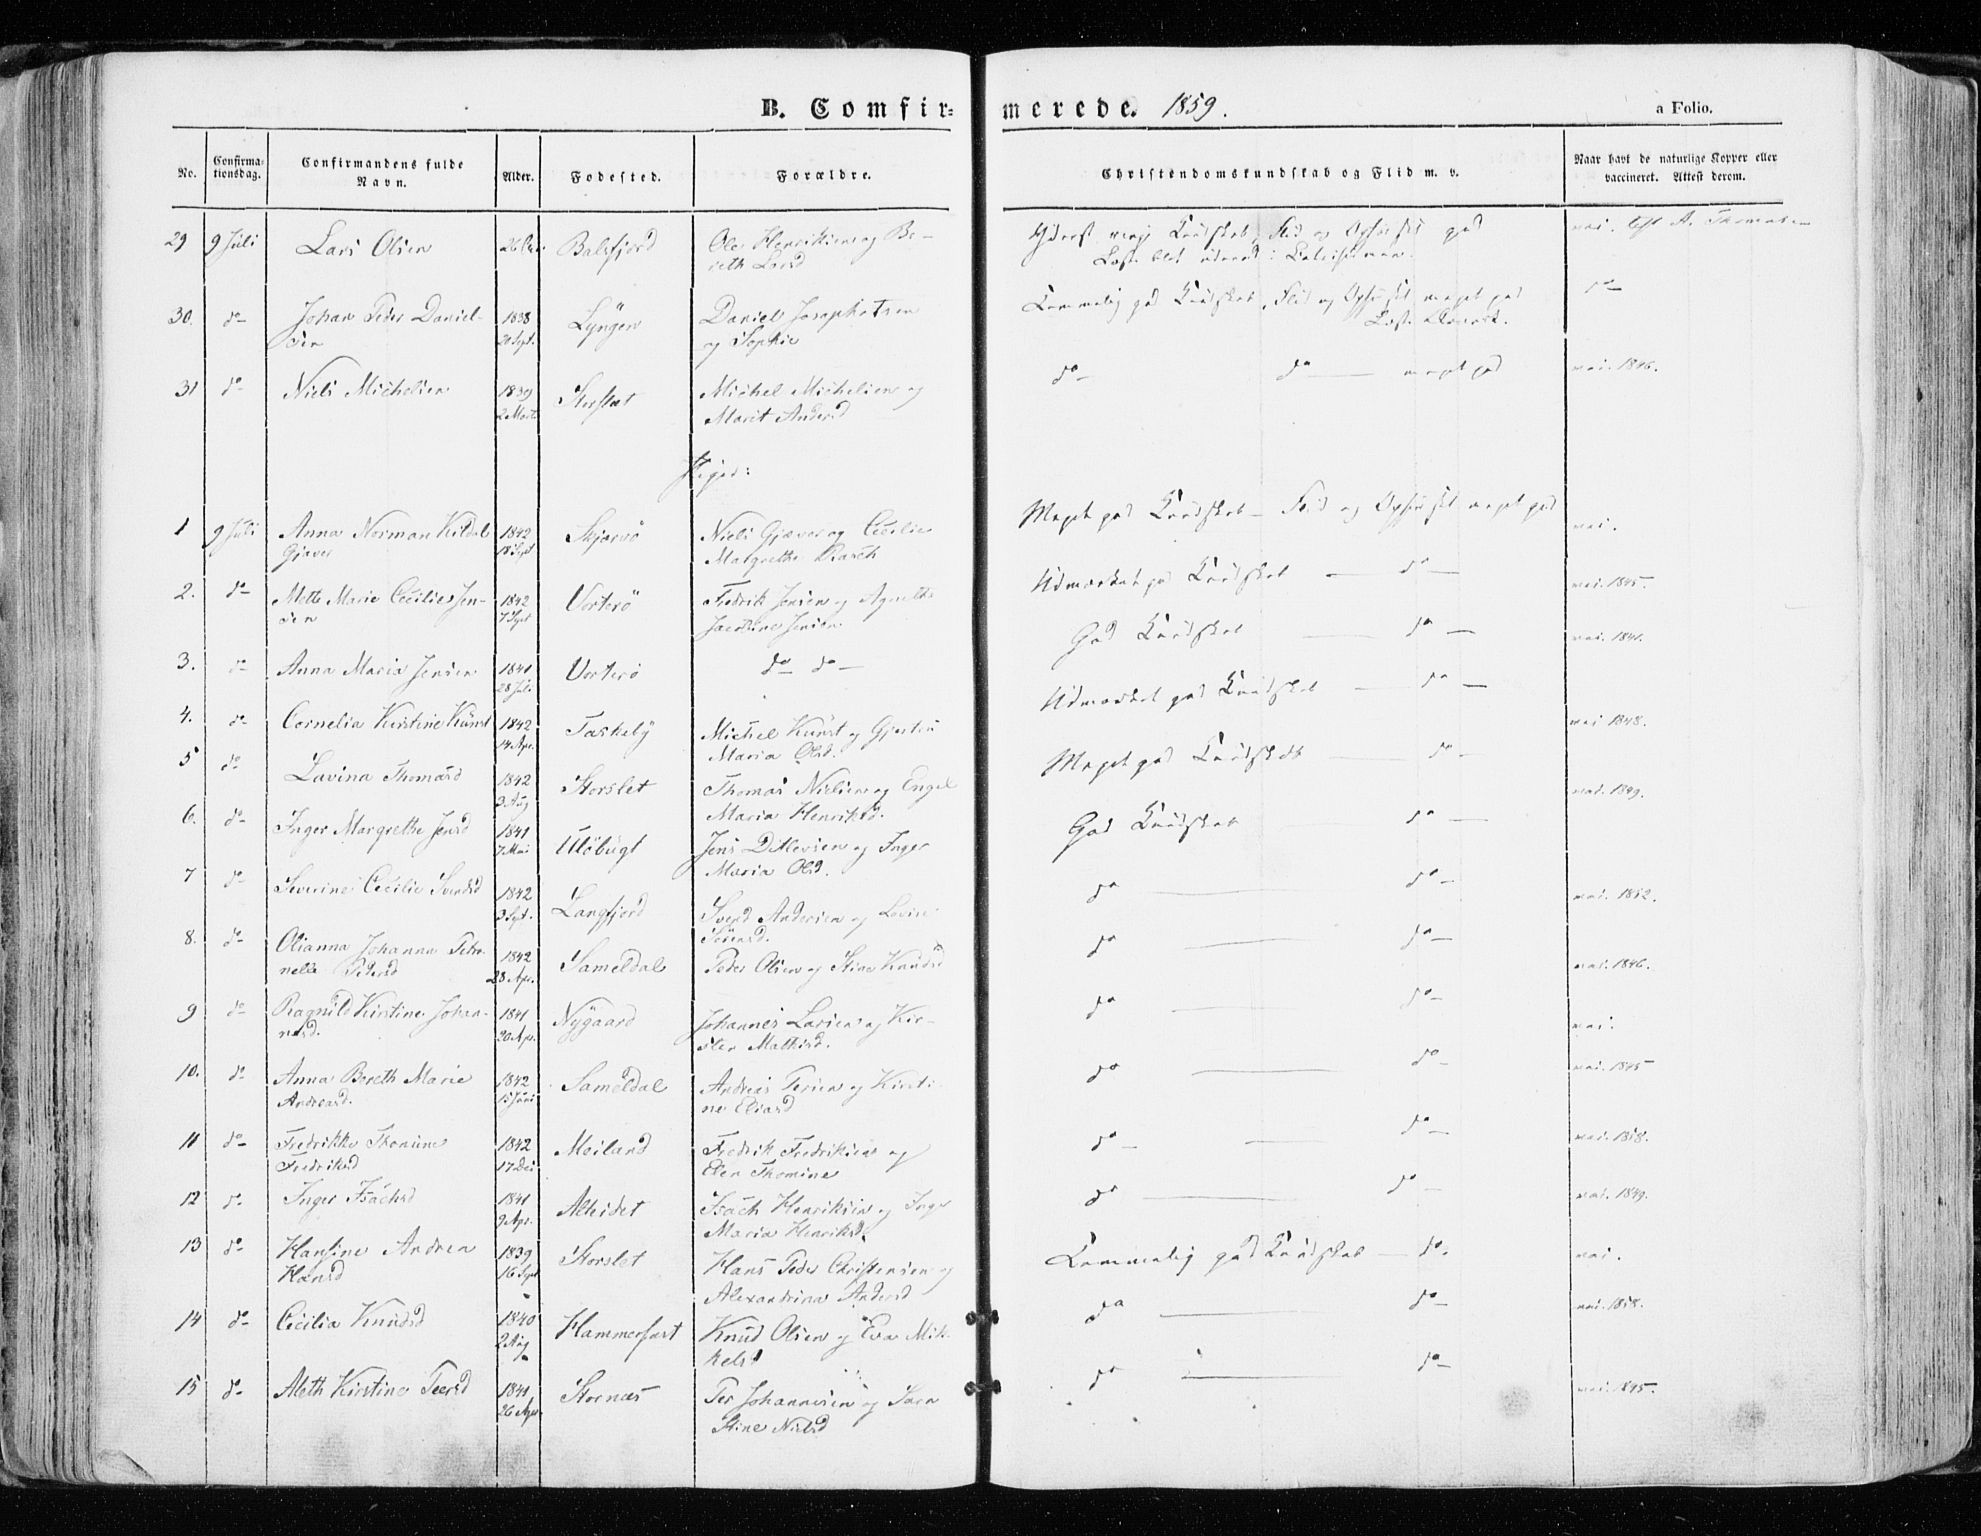 B. Comfirmerede. 1859.
a Folio.
No. Confirmationsdag. Confirmandens fulde Navn. Alder. Fødested. Forældre. Christendomskundskab og Flid m. v. Naar havt de naturlige Kopper eller vaccineret. Attest derom.
29 9 Juli Lars Olsen Balsfjord Ole Henriksen og Be- maadl. Kundskab, Flid og Opførsel god vac.
reth Larsd
30. do Johan Peder Daniel- 1838 Lyngen Daniel Josephatsen Temmelig god Kundskab, Flid og Opførsel meget god do
sen 20 Sept. og Sophie
31 do Niels Michelsen 1839 Storslet Michel Michelsen og do do meget god vac. 1846.
2 Marts Marit Andersd
Piger:
1 9 Juli Anna Norman Kildal 1842 Skjærvö Niels Gjæver og Cecilie Meget god Kundskab - Flid og Opførsel meget god vac.
Gjæver 18 Sept Margrethe Rasch
2. do Mette Marie Cecilie Jen- 1842 Vorterö Fredrik Jensen og Agnethe Udmærket god Kundskab do vac. 1845.
sen 7 Sept Jacobine Jensen
3. do Anna Maria Jensen 1841 Vorterö do do God Kundskab do vac. 1841.
28 Juli
4. do Cornelia Kirstine Kunst 1842 Taskeby Michel Kunst og Gjertru Udmærket god Kundskab do vac. 1848.
14 Apr. Maria Olsd.
5 do Lavina Thomasd 1842 Storslet Thomas Nielsen og Engel Meget god Kundskab do vac. 1849.
3 Aug Maria Henriksd.
6. do Inger Margrethe Jensd 1841 Ulöbugt Jens Ditlevsen og Inger God Kundskab do
7 Mai Maria Olsd.
7 do Severine Cecilie Svendsd 1842 Langfjord Svend Andersen og Lovise do do vac. 1852.
3 Sept. Sörensd.
8. do Olianna Johanna Petro- 1842 Sameldal Peder Olsen og Stine Knudsd do do vac. 1846.
nelle Pedersd 28 Apr.
9 do Ragnild Kirstine Johan- 1841 Nygaard Johannes Larsen og Kir- do do vac.
nesd. 30 Apr. sten Mathisd.
10. do Anna Bereth Marie 1842 Sameldal Andreas Persen og Kirsti- do do vac. 1845
Andreasd. 15 Juni ne Eliasd
11 do Fredrikke Thomine 1842 Meiland Fredrik Fredriksen og do do vac. 1858.
Fredriksd 17 Elen Thomine
12 do Inger Isachsd 1841 Alteidet Isach Henriksen og Inger do do vac. 1849.
9 Apr. Maria Henriksd.
13 do Hansine Andrea 1839 Storslet Hans Peder Christensen og Temmelig god Kundskab do. vac.
Hansd 16 Sept Alexandrina Andersd
14 do Cecilia Knudsd 1840 Hammerfest Knud Olsen og Eva Mik- do do vac. 1858.
2 Aug kelsd
15 do Aleth Kirstine Peersd 1841 Stornæs Per Johannesen og Karn do do vac. 1845.
26 Apr. Stine Nielsd